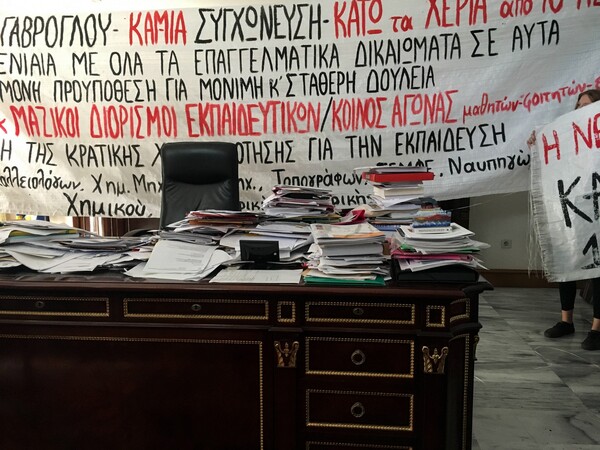 ΓΑΒΡΟΓΛΟΥ - ΚΑΜΙΑ ΣΥΓΧΩΝΕΥΣΗ - ΚΑΤΩ τα ΧΕΡΙΑ από το
ΕΝΙΑΙΑ ΜΕ ΟΛΑ ΤΑ ΕΠΑΓΓΕΛΜΑΤΙΚΑ ΔΙΚΑΙΩΜΑΤΑ ΣΕ ΑΥΤΑ
ΜΟΝΗ ΠΡΟΫΠΟΘΕΣΗ ΓΙΑ ΜΟΝΙΜΗ Κ' ΣΤΑΘΕΡΗ ΔΟΥΛΕΙΑ
ΜΑΖΙΚΟΙ ΔΙΟΡΙΣΜΟΙ ΕΚΠΑΙΔΕΥΤΙΚΩΝ/ΚΟΙΝΟΣ ΑΓΩΝΑΣ μαθητών-φοιτητών-
Η ΤΗΣ ΚΡΑΤΙΚΗΣ ΓΙΑ ΤΗΝ ΕΚΠΑΙΔΕΥΣΗ
Χημ. Μηχ Τοπογράφων, Ναυπηγών
Χημικού,
Η ΝΕ
ΚΑ